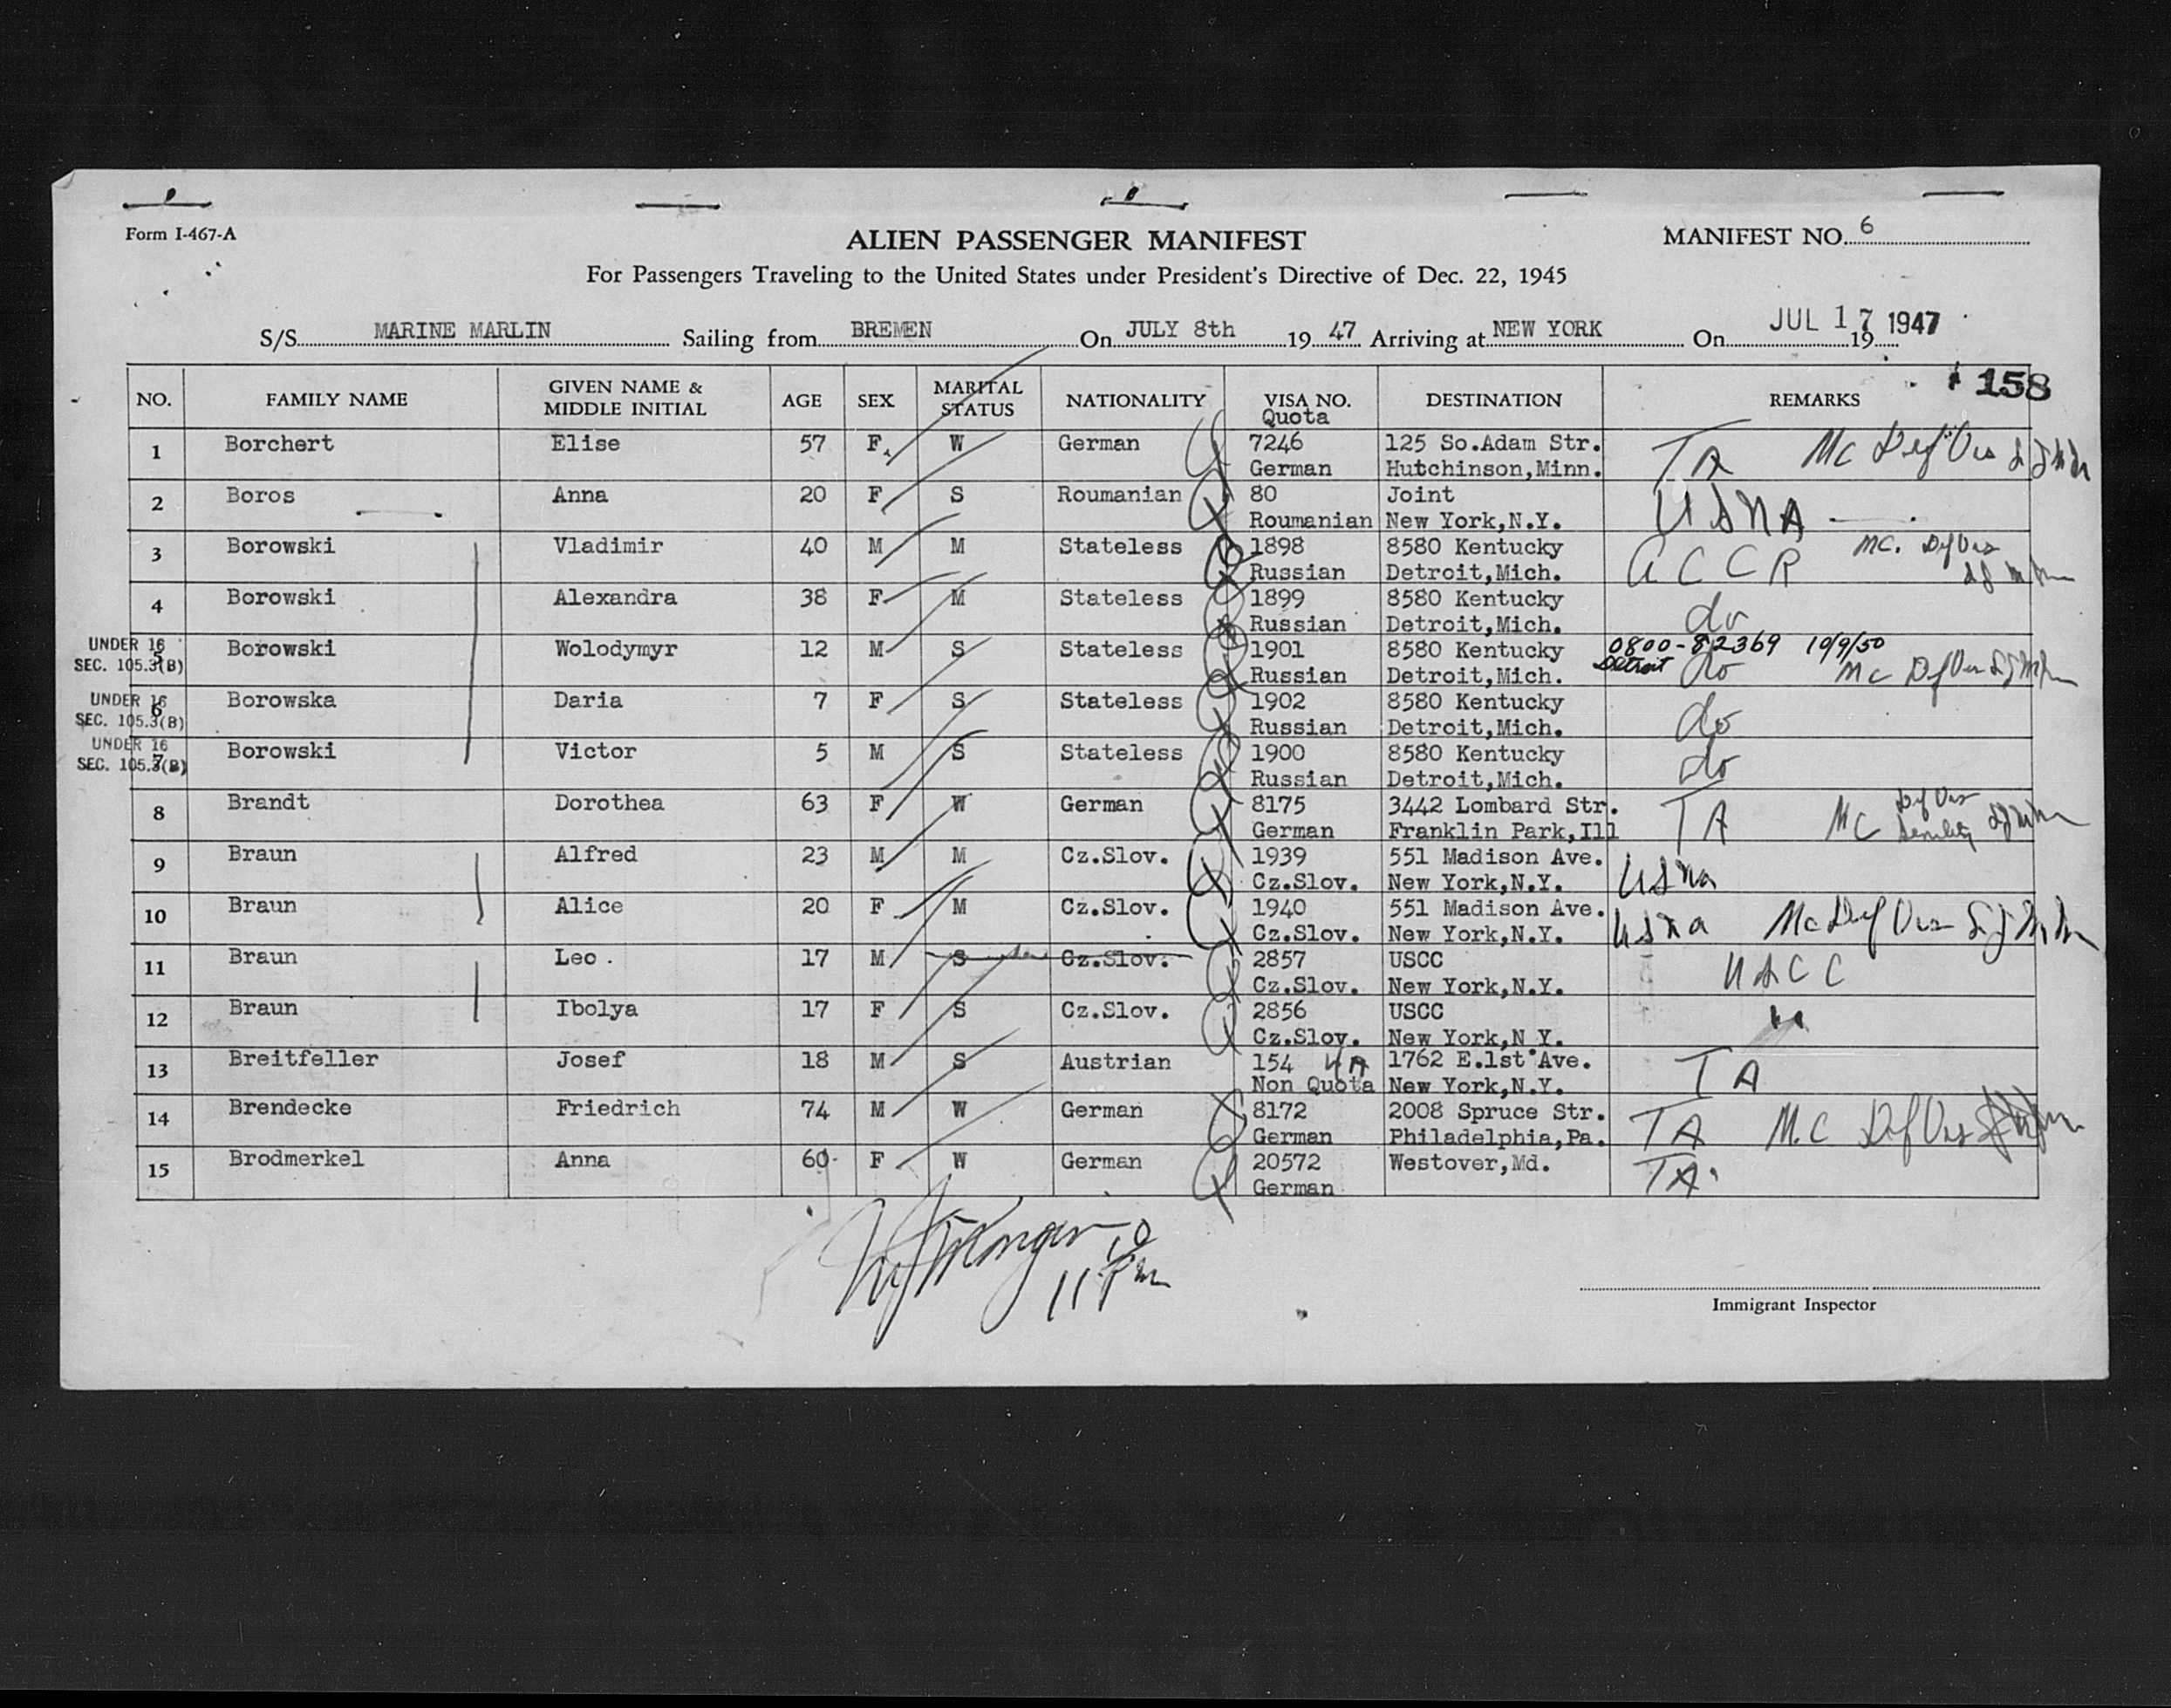 Form I-467-A
ALIEN PASSENGER MANIFEST
MANIFEST NO. 6
For Passengers Traveling to the United States under President's Directive of Dec. 22, 1945
S/S MARINE MARLIN Sailing from BREMEN On JULY 8th 19 47 Arriving at NEW YORK On JUL 17 1947 19
158
NO. FAMILY NAME GIVEN NAME & MIDDLE INITIAL AGE SEX MARITAL STATUS NATIONALITY VISA NO. Quota DESTINATION REMARKS
1 Borchert Elise 57 F W German 7246 125 So.Adam Str. TA Mc
German Hutchinson,Minn.
2 Boros Anna 20 F S Roumanian 80 Joint USNA
Roumanian New York,N.Y.
3 Borowski Vladimir 40 M M Stateless 1898 8580 Kentucky ACCR MC.
Russian Detroit,Mich.
4 Borowski Alexandra 38 F M Stateless 1899 8580 Kentucky do
Russian Detroit,Mich.
UNDER 16 SEC. 105.3(B)
5 Borowski Wolodymyr 12 M S Stateless 1901 8580 Kentucky 0800-82369 10/9/50
Russian Detroit,Mich. Detroit do Mc
UNDER 16 SEC. 105.3(B)
6 Borowska Daria 7 F S Stateless 1902 8580 Kentucky do
Russian Detroit,Mich.
UNDER 16 SEC. 105.3(B)
7 Borowski Victor 5 M S Stateless 1900 8580 Kentucky do
Russian Detroit,Mich.
8 Brandt Dorothea 63 F W German 8175 3442 Lombard Str. TA Mc
German Franklin Park,Ill
9 Braun Alfred 23 M M Cz.Slov. 1939 551 Madison Ave. USNA
Cz.Slov. New York,N.Y.
10 Braun Alice 20 F M Cz.Slov. 1940 551 Madison Ave. USNA Mc
Cz.Slov. New York,N.Y.
11 Braun Leo. 17 M S Cz.Slov. 2857 USCC USCC
Cz.Slov. New York,N.Y.
12 Braun Ibolya 17 F S Cz.Slov. 2856 USCC "
Cz.Slov. New York,N Y.
13 Breitfeller Josef 18 M S Austrian 154 4A 1762 E.1st Ave. TA
Non Quota New York,N.Y.
14 Brendecke Friedrich 74 M W German 8172 2008 Spruce Str. TA M.C
German Philadelphia,Pa.
15 Brodmerkel Anna 60 F W German 20572 Westover,Md. TA.
German
Immigrant Inspector